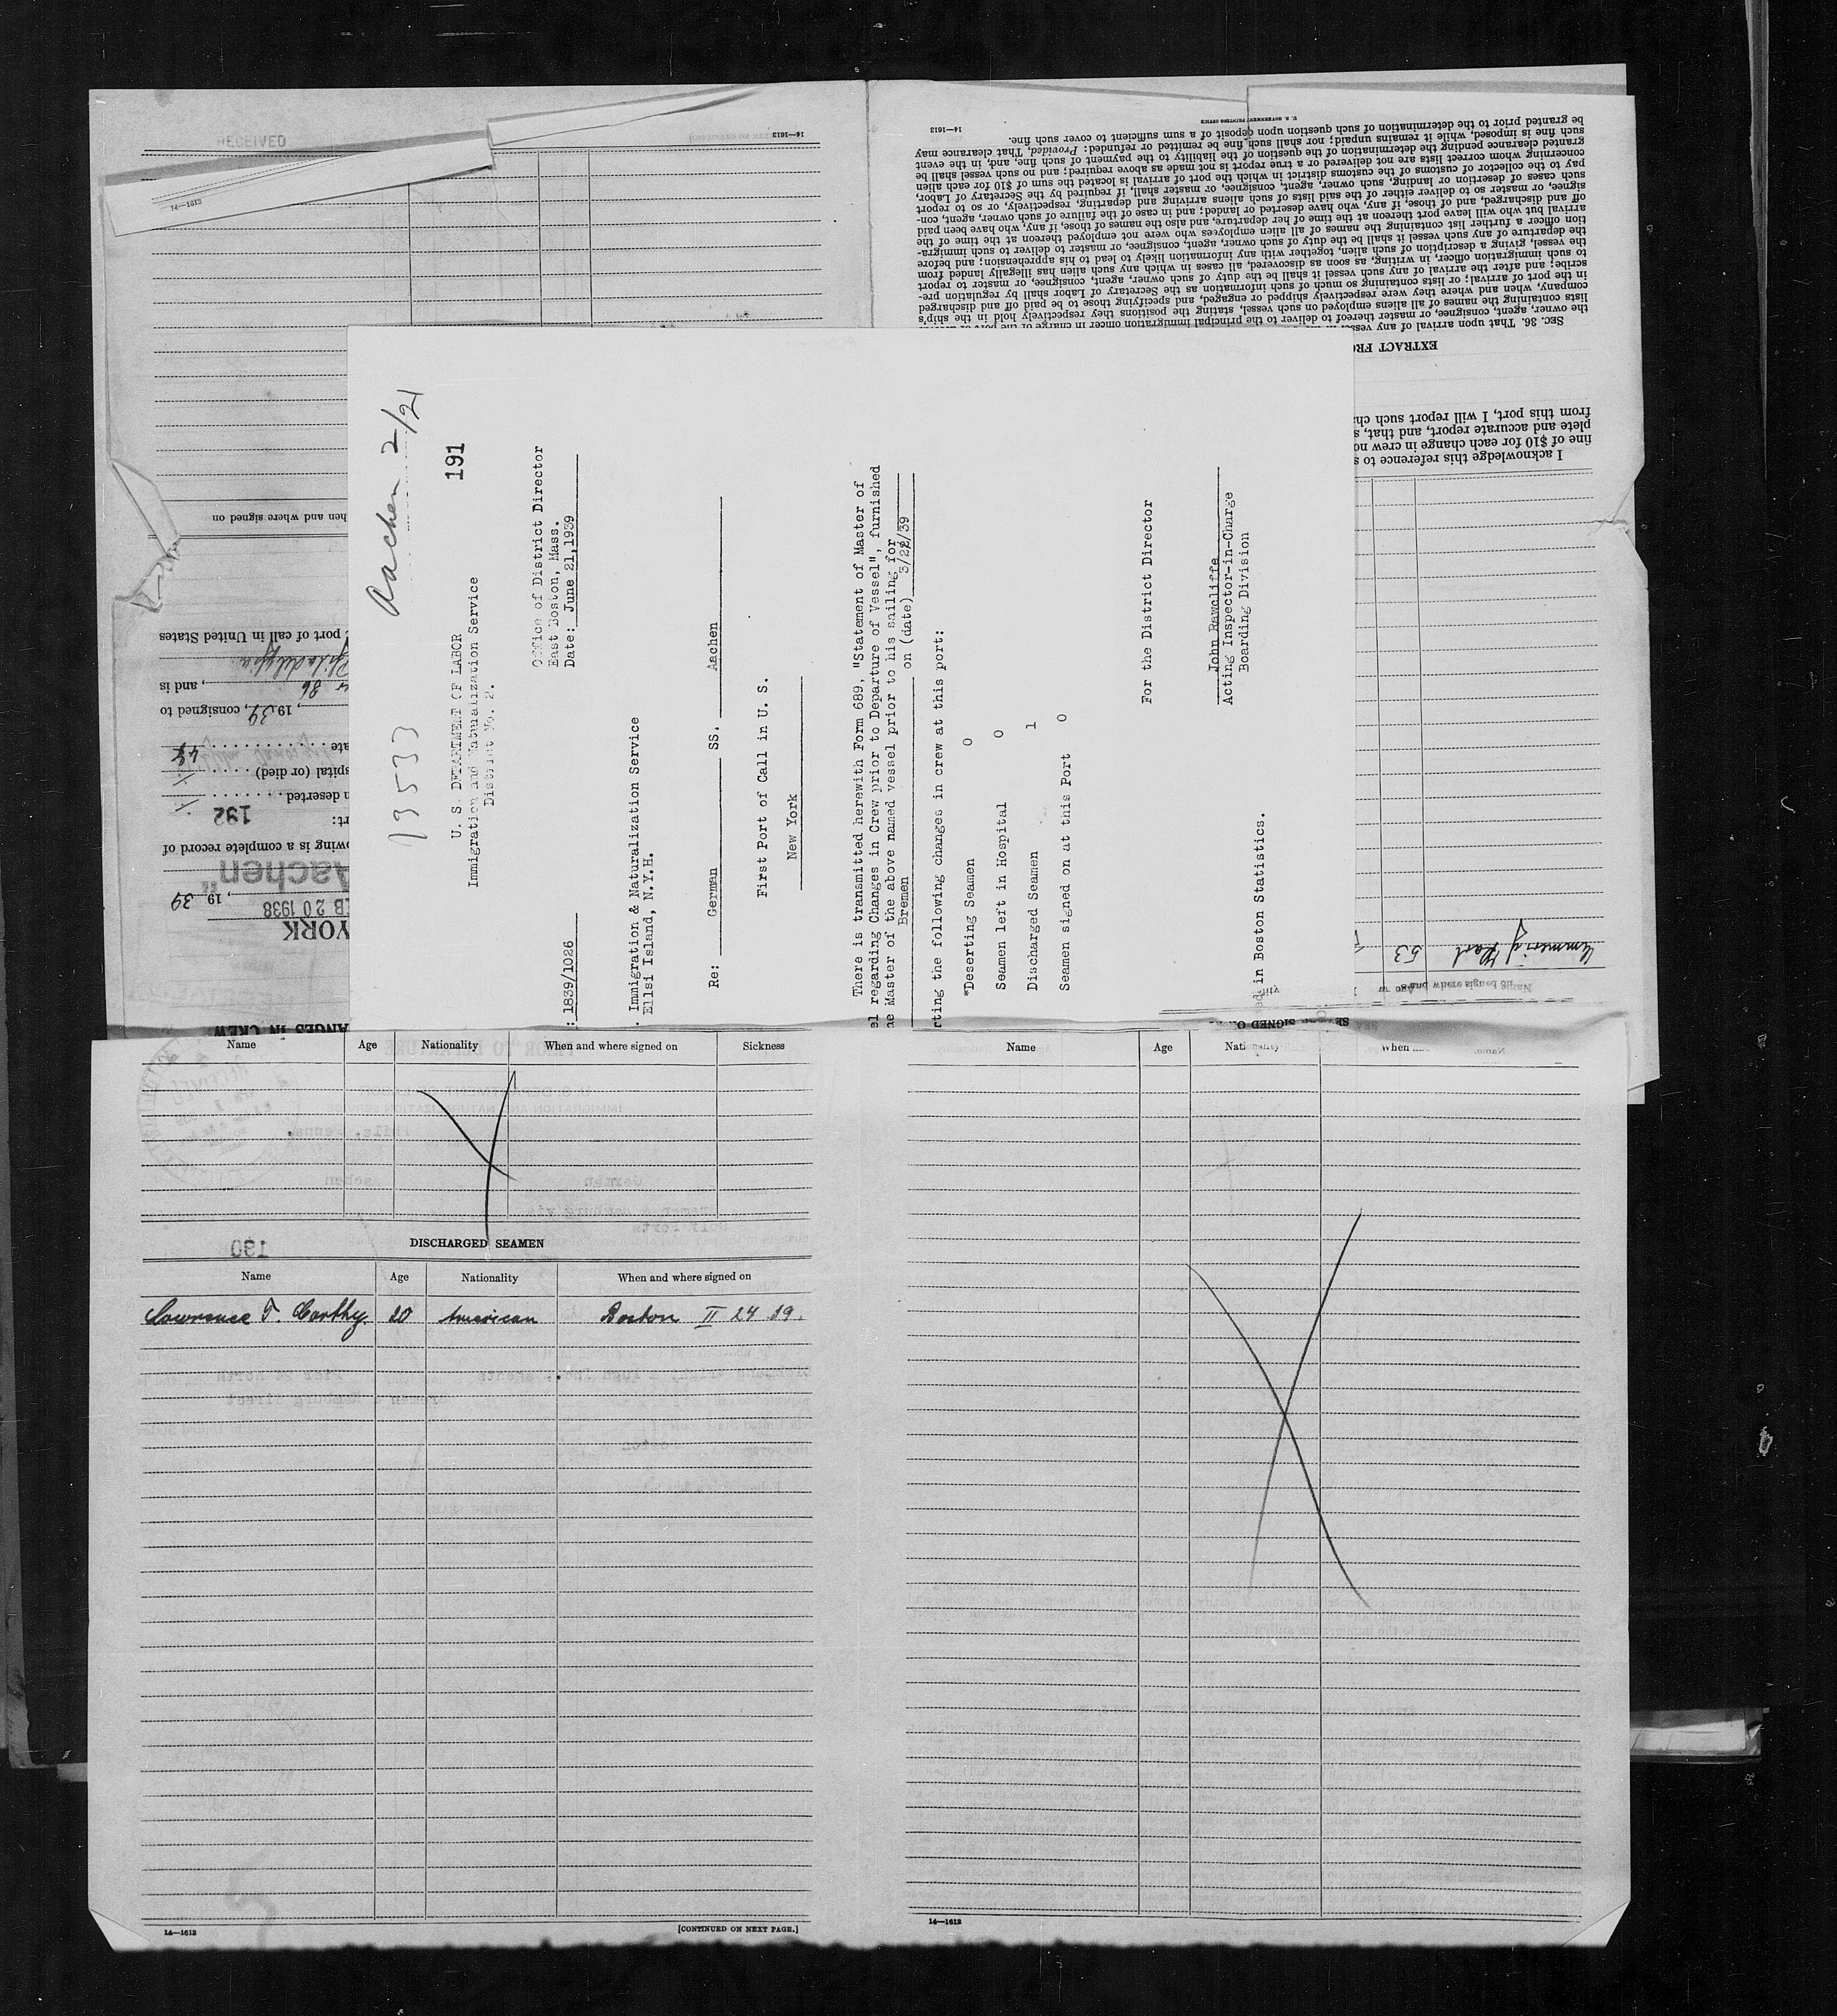 RECEIVED
14—1613
14—1613
hen and where signed on
port of call in United States
Philadelphia
, and is
86
, 1939, consigned to
ate . . . . . . . . . . 48
spital (or died) . . . . . .
n deserted . . . . . . . .
192
rt:
owing is a complete record of
Aachen"
, 19 39
B 20 1938
YORK
ANGES IN CREW
U. S. GOVERNMENT PRINTING OFFICE
14—1613
EXTRACT FRO
SEC. 36. That upon arrival of any vesse
the owner, agent, consignee, or master thereof to deliver to the principal immigration officer in charge of the port of
lists containing the names of all aliens employed on such vessel, stating the positions they respectively hold in the ship's
company, when and where they were respectively shipped or engaged, and specifying those to be paid off and discharged
in the port of arrival; or lists containing so much of such information as the Secretary of Labor shall by regulation pre-
scribe; and after the arrival of any such vessel it shall be the duty of such owner, agent, consignee, or master to report
to such immigration officer, in writing, as soon as discovered, all cases in which any such alien has illegally landed from
the vessel, giving a description of such alien, together with any information likely to lead to his apprehension; and before
the departure of any such vessel it shall be the duty of such owner, agent, consignee, or master to deliver to such immigra-
tion officer a further list containing the names of all alien employees who were not employed thereon at the time of the
arrival but who will leave port thereon at the time of her departure, and also the names of those, if any, who have been paid
off and discharged, and of those, if any, who have deserted or landed; and in case of the failure of such owner, agent, con-
signee, or master so to deliver either of the said lists of such aliens arriving and departing, respectively, or so to report
such cases of desertion or landing, such owner, agent, consignee, or master shall, if required by the Secretary of Labor,
pay to the collector of customs of the customs district in which the port of arrival is located the sum of $10 for each alien
concerning whom correct lists are not delivered or a true report is not made as above required; and no such vessel shall be
granted clearance pending the determination of the question of the liability to the payment of such fine, and, in the event
such fine is imposed, while it remains unpaid; nor shall such fine be remitted or refunded: Provided, That clearance may
be granted prior to the determination of such question upon deposit of a sum sufficient to cover such fine.
I acknowledge this reference to s
fine of $10 for each change in crew no
plete and accurate report, and that, s
from this port, I will report such cha
53
Name
Age
SIGNED O
13533 Aachen 2/21
191
U. S. DEPARTMENT OF LABOR
Immigration and Naturalization Service
District No. 2.
Office of District Director
East Boston, Mass.
Date: June 21,1939
: 1839/1026
. Immigration & Naturalization Service
Ellsi Island, N.Y.H.
Re: German SS. Aachen
First Port of Call in U. S.
New York
There is transmitted herewith Form 689, "Statement of Master of
el regarding Changes in Crew prior to Departure of Vessel", furnished
he Master of the above named vessel prior to his sailing for
Bremen on (date) 3/22/39
rting the following changes in crew at this port:
*Deserting Seamen 0
Seamen left in Hospital 0
Discharged Seamen 1
Seamen signed on at this Port 0
For the District Director
John Rawcliffe
Acting Inspector-in-Charge
Boarding Division
ed in Boston Statistics.
Name Age Nationality When and where signed on Sickness
190
DISCHARGED SEAMEN
Name Age Nationality When and where signed on
Lawrence T. Carthy. 20 American Boston II 24 39.
14—1613
[CONTINUED ON NEXT PAGE.]
Name Age Nationality When
14—1613